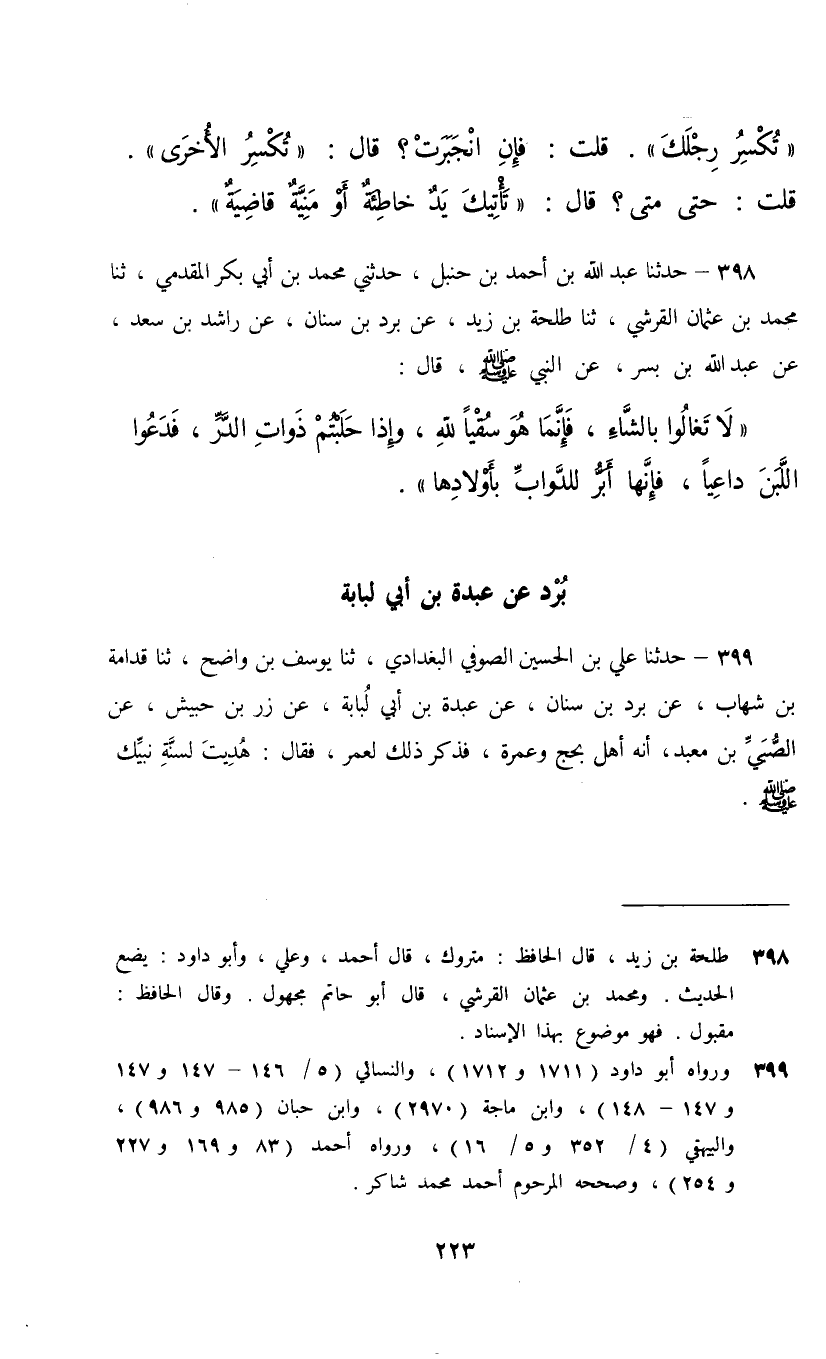 « تُكْسِرُ رِجْلَكَ » . قلت : فإِنِ انْجَبَرَتْ ؟ قال : « تُكْسِرُ الأُخرَى » .
قلت : حتى متى ؟ قال : « تَأْتِيكَ يَدٌ خاطِئَةٌ أَوْ مَنِيَّةٌ قاضِيَةٌ » .
٣٩٨ – حدثنا عبد الله بن أحمد بن حنبل ، حدثني محمد بن أبي بكر المقدمي ، ثنا
محمد بن عثمان القرشي ، ثنا طلحة بن زيد ، عن برد بن سنان ، عن راشد بن سعد ،
عن عبد الله بن بسر ، عن النبي ﷺ ، قال :
« لَا تَغالُوا بالشَّاءِ ، فَإِنَّمَا هُوَ سُقْياً للهِ ، وإِذا حَلَبْتُمْ ذَواتِ الدَّرِّ ، فَدَعُوا
اللَّبَنَ داعِياً ، فإِنَّها أَبَرُّ للدَّوابِّ بأَوْلادِها » .
بُرْد عن عبدة بن أبي لبابة
٣٩٩ – حدثنا علي بن الحسين الصوفي البغدادي ، ثنا يوسف بن واضح ، ثنا قدامة
بن شهاب ، عن برد بن سنان ، عن عبدة بن أبي لُبابة ، عن زر بن حبيش ، عن
الصُّبَيِّ بن معبد، أنه أهل بحج وعمرة ، فذكر ذلك لعمر ، فقال : هُدِيتَ لسنَّةِ نبيِّك
ﷺ .
٣٩٨ طلحة بن زيد ، قال الحافظ : متروك ، قال أحمد ، وعلي ، وأبو داود : يضع
الحديث . ومحمد بن عثمان القرشي ، قال أبو حاتم مجهول . وقال الحافظ :
مقبول . فهو موضوع بهذا الإسناد .
٣٩٩ ورواه أبو داود ( ١٧١١ و ١٧١٢ ) ، والنسائي ( ٥ / ١٤٦ – ١٤٧ و ١٤٧
و ١٤٧ – ١٤٨ ) ، وابن ماجة ( ٢٩٧٠ ) ، وابن حبان ( ٩٨٥ و ٩٨٦ ) ،
والبيهقي ( ٤ / ٣٥٢ و ٥ / ١٦ ) ، ورواه أحمد ( ٨٣ و ١٦٩ و ٢٢٧
و ٢٥٤ ) ، وصححه المرحوم أحمد محمد شاكر .
٢٢٣